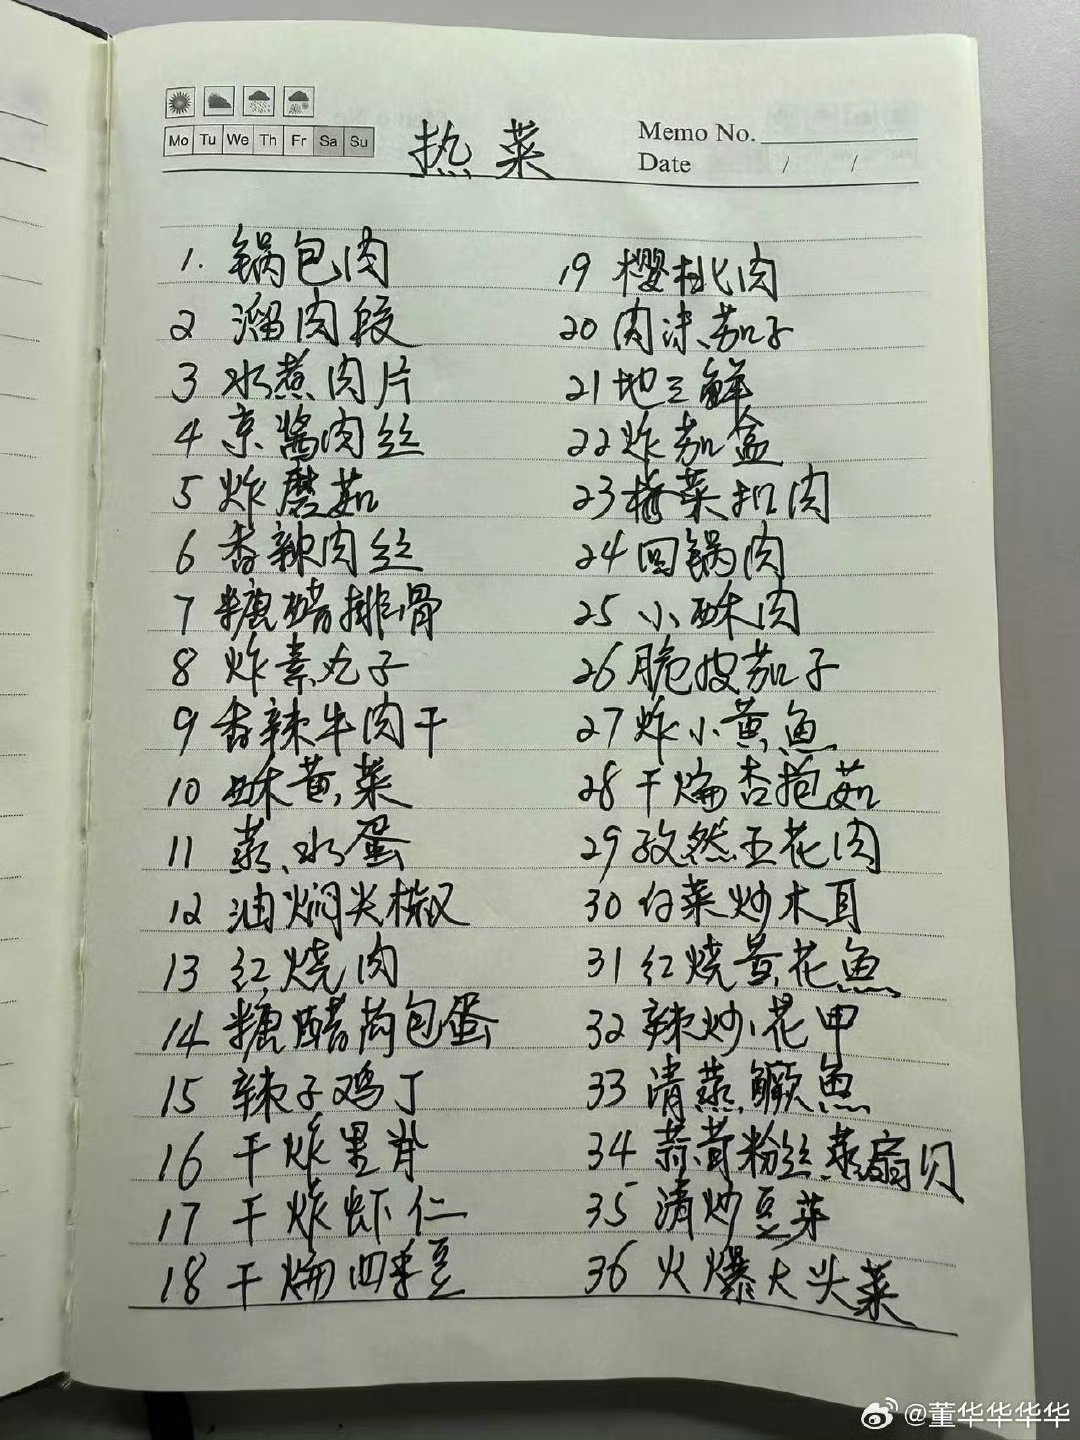 Mo Tu We Th Fr Sa Su
热菜
Memo No.
Date / /
1. 锅包肉
2 溜肉段
3 水煮肉片
4 京酱肉丝
5 炸磨菇
6 香辣肉丝
7 糖醋排骨
8 炸素丸子
9 香辣牛肉干
10 酥黄菜
11 蒸水蛋
12 油焖尖椒
13 红烧肉
14 糖醋荷包蛋
15 辣子鸡丁
16 干炸里脊
17 干炸虾仁
18 干煸四季豆
19 樱桃肉
20 肉沫茄子
21 地三鲜
22 炸茄盒
23 梅菜扣肉
24 回锅肉
25 小酥肉
26 脆皮茄子
27 炸小黄鱼
28 干煸杏抱菇
29 孜然五花肉
30 白菜炒木耳
31 红烧黄花鱼
32 辣炒花甲
33 清蒸鳜鱼
34 蒜蓉粉丝蒸扇贝
35 清炒豆芽
36 火爆大头菜
@董华华华华